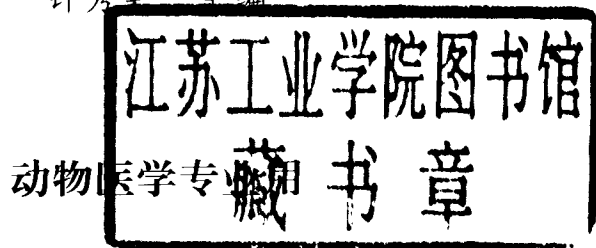 江苏工业学院图书馆
藏书章
动物医学专业用